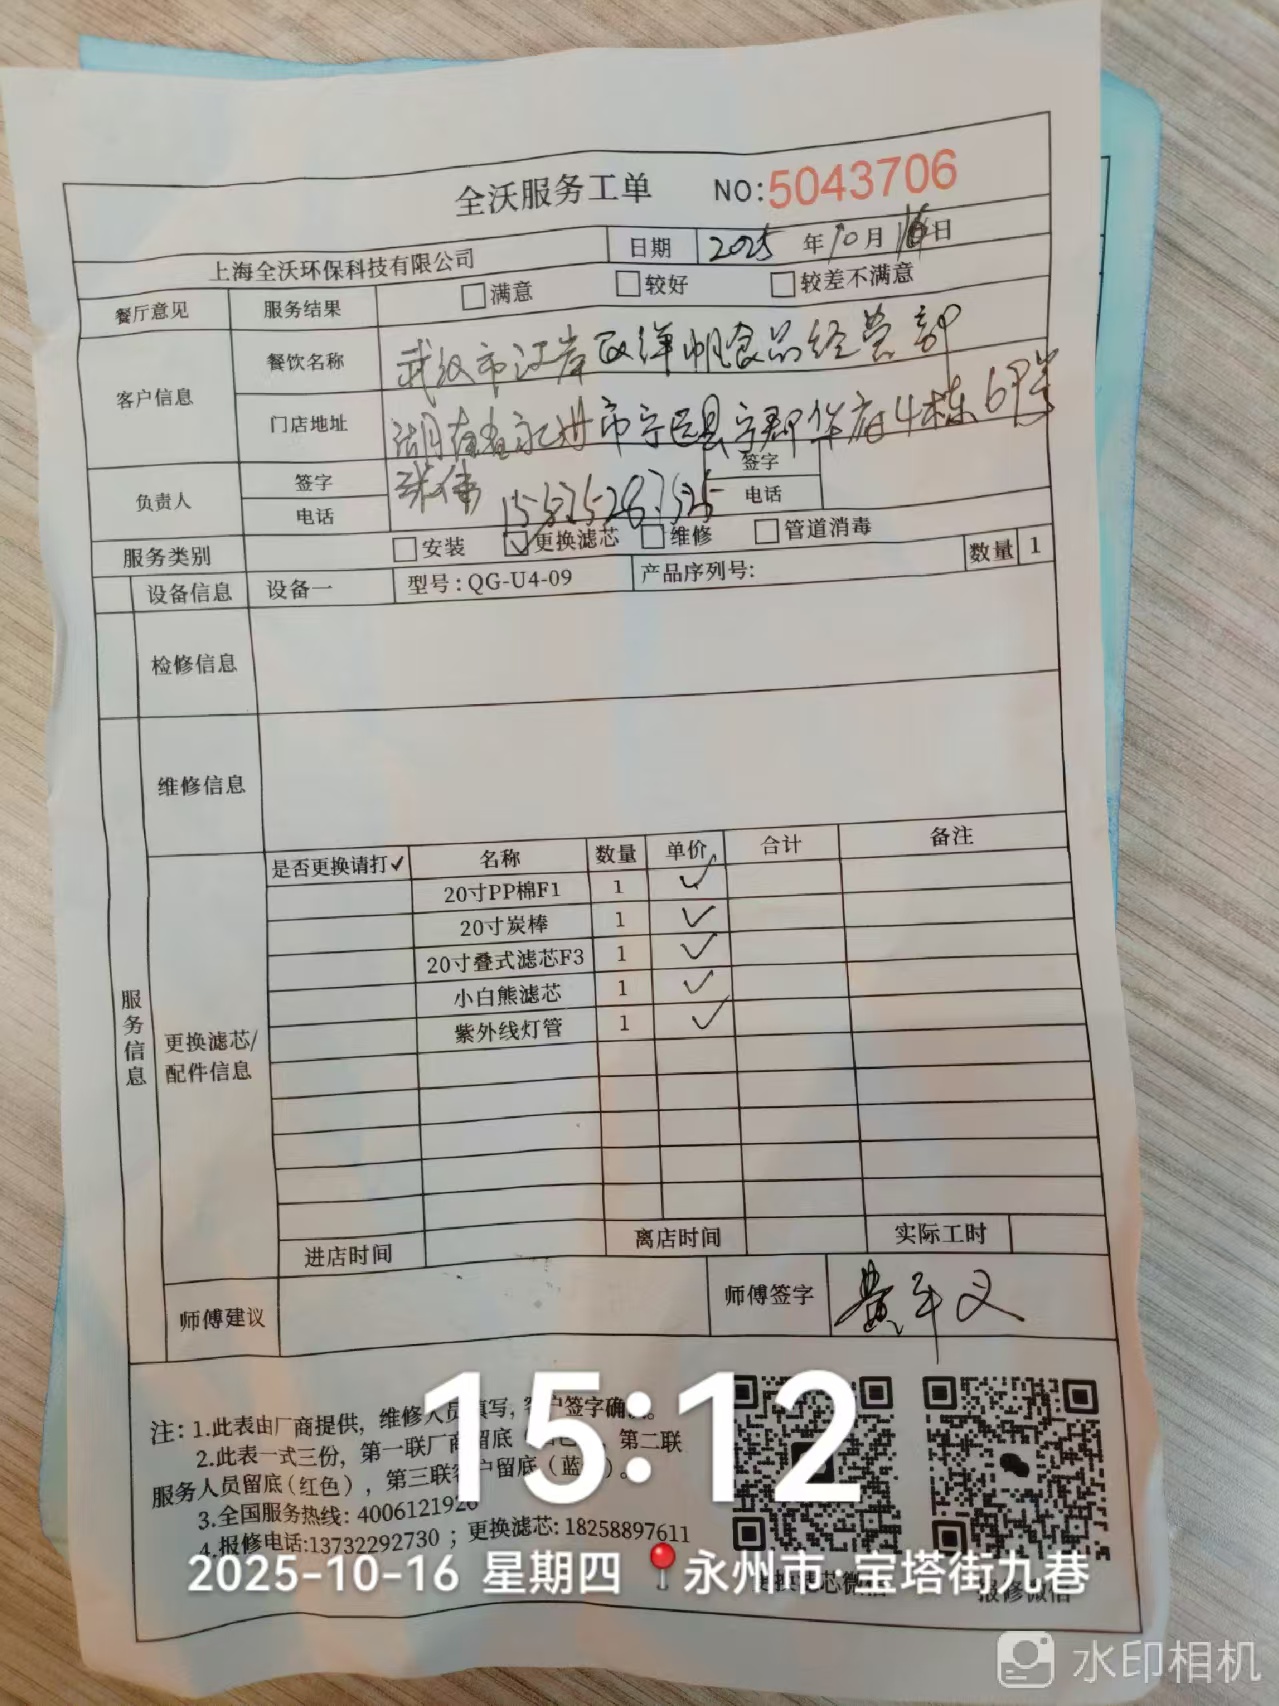 全沃服务工单 NO:5043706
上海全沃环保科技有限公司 日期 2025 年 10 月 16 日
餐厅意见 服务结果 □满意 □较好 □较差不满意
客户信息 餐饮名称 武汉市江岸区洋帆食品经营部
门店地址 湖南省永州市宁远县宁郡华府4栋
负责人 签字 签字
电话 电话
服务类别 □安装 ☑更换滤芯 □维修 □管道消毒
设备信息 设备一 型号:QG-U4-09 产品序列号: 数量 1
检修信息
维修信息
服务信息
更换滤芯/
配件信息
是否更换请打✓ 名称 数量 单价 合计 备注
20寸PP棉F1 1 ✓
20寸炭棒 1 ✓
20寸叠式滤芯F3 1 ✓
小白熊滤芯 1 ✓
紫外线灯管 1 ✓
进店时间 离店时间 实际工时
师傅建议 师傅签字
注: 1.此表由厂商提供, 维修人员填写, 客户签字确认。
2.此表一式三份, 第一联厂商留底 第二联
服务人员留底(红色), 第三联客户留底(蓝 )。
3.全国服务热线: 4006121926
4.报修电话:13732292730 ; 更换滤芯: 18258897611
报修微信
15:12
2025-10-16 星期四 永州市·宝塔街九巷
水印相机